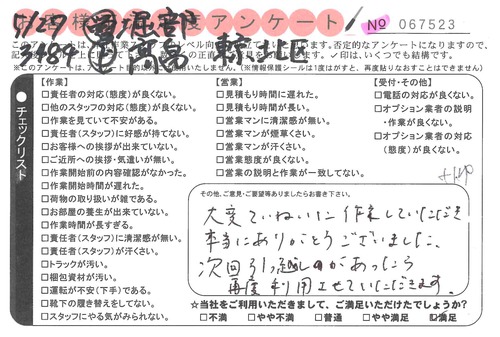 アンケート
№ 067523
9/29 堀部
3989
東北区
【作業】
□責任者の対応(態度)が良くない。
□他のスタッフの対応(態度)が良くない。
□作業を見ていて不安がある。
□責任者(スタッフ)に好感が持てない。
□お客様への挨拶が出来ていない。
□ご近所への挨拶・気遣いが無い。
□作業開始前の内容確認がなかった。
□作業開始時間が遅れた。
□荷物の取り扱いが雑である。
□お部屋の養生が出来ていない。
□作業時間が長すぎる。
□責任者(スタッフ)に清潔感が無い。
□責任者(スタッフ)が汗くさい。
□トラックが汚い。
□梱包資材が汚い。
□運転が不安(下手)である。
□靴下の履き替えをしてない。
□スタッフにやる気がみられない。
【営業】
□見積もり時間に遅れた。
□見積もり時間が長い。
□営業マンに清潔感が無い。
□営業マンが煙草くさい。
□営業マンが汗くさい。
□営業態度が良くない。
□営業の説明と作業が一致してない。
【受付・その他】
□電話の対応が良くない。
□オプション業者の説明
・作業が良くない。
□オプション業者の対応
(態度)が良くない。
チェックリスト
その他、ご意見・ご要望等ありましたらお書き下さい。
大変ていねいに作業していただき
本当にありがとうございました。
次回引っ越しのがあったら
再度利用させていただきます。
☆当社をご利用いただきまして、ご満足いただけたでしょうか?
□不満 □やや不満 □普通 □やや満足 ☑満足